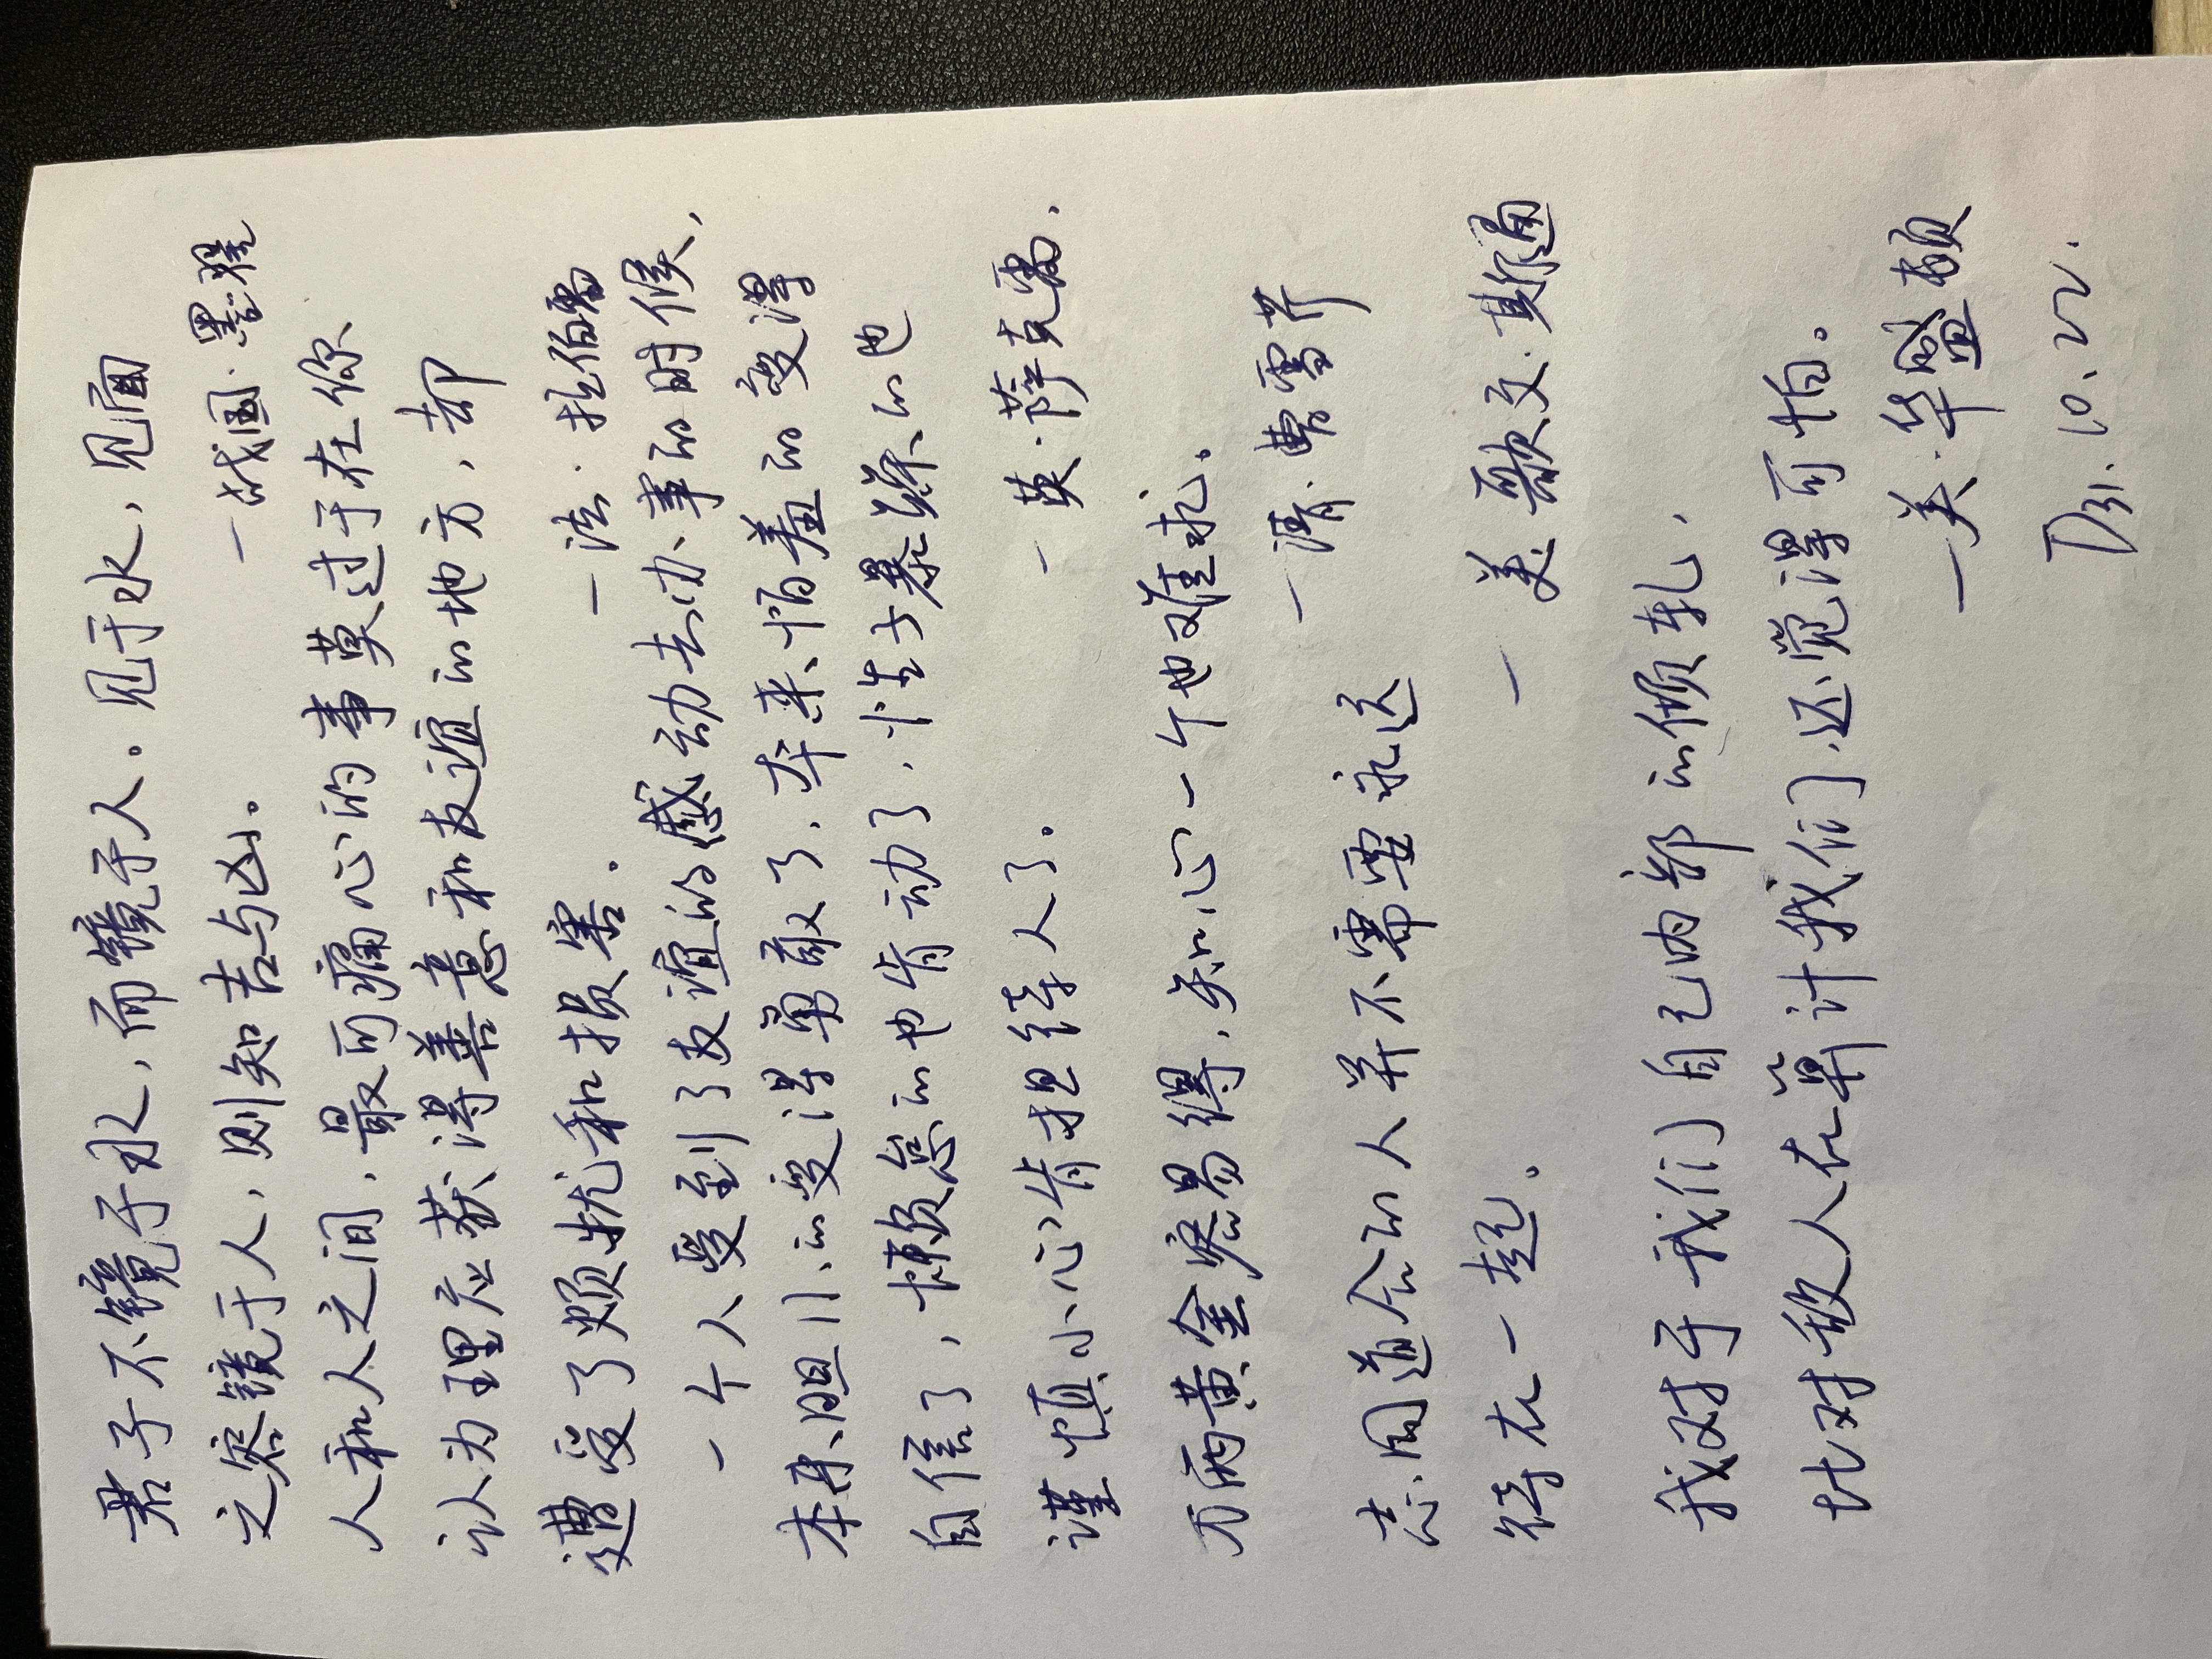 君子不镜于水，而镜于人。见于水，见面
之容镜于人，则知吉与凶。 一战国·墨翟
人和人之间，最可痛心的事莫过于在你
认为理应获得善意和友谊的地方，却
遭受了烦扰和损害。 一法·拉伯雷
一个人受到了友谊的感动去办事的时候，
本来胆小的变得勇敢了，本来怕羞的变得
自信了，懒怠的也肯动了，性子暴躁的也
谨慎小心肯担待人了。 一英·萨克雷．
万两黄金容易得，知心一个也难求。
一清·曹雪芹
志同道合的人并不需要永远
待在一起。 一美·歌文·斯通
我对于我们自己内部的倾轧，
比对敌人在算计我们，还觉得可怕。
一美·华盛顿
D31.10.22.